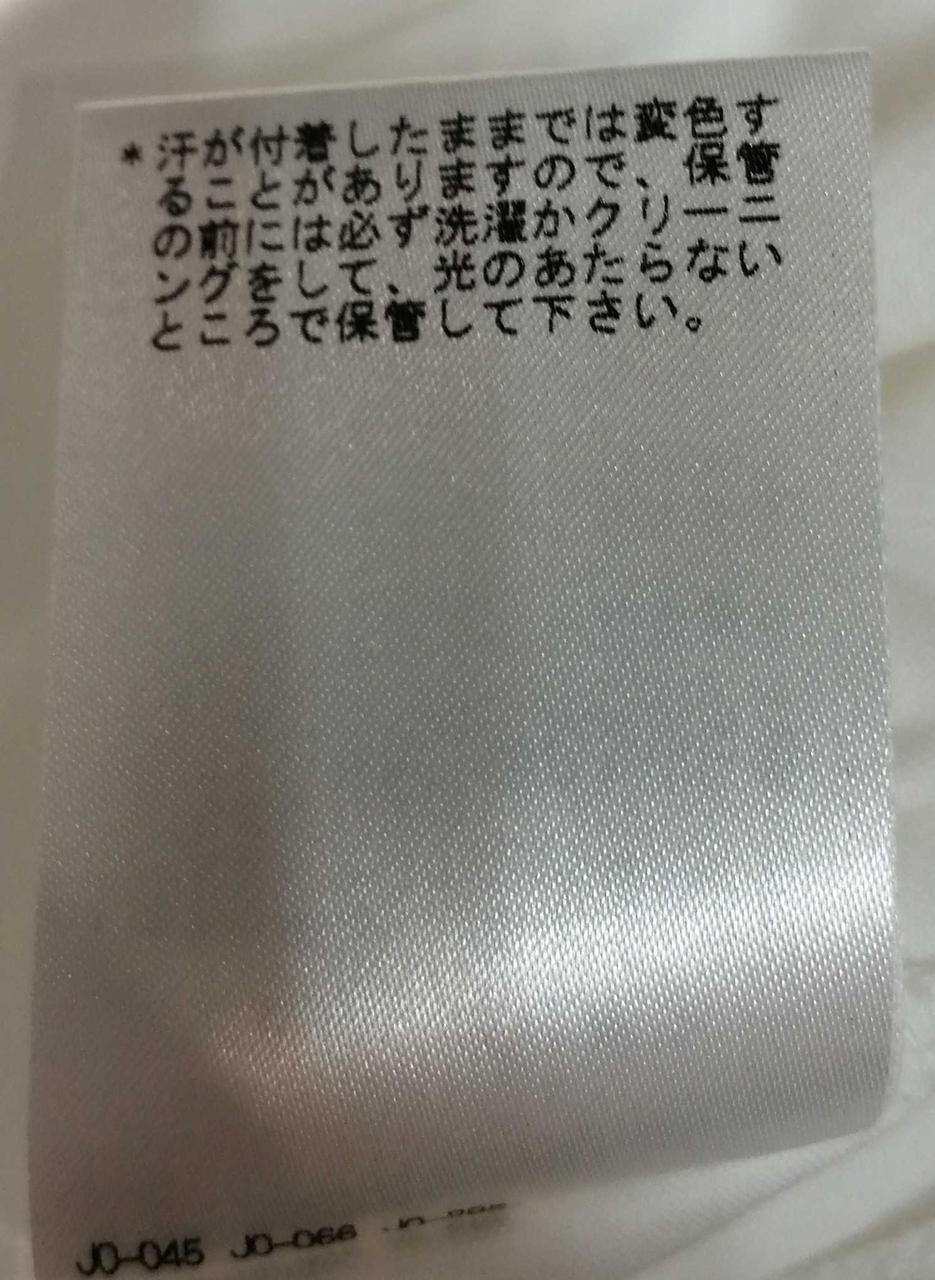 *汗が付着したままでは変色す
ることがありますので、保管
の前には必ず洗濯かクリーニ
ングをして、光のあたらない
ところで保管して下さい。
JO-045 JO-066